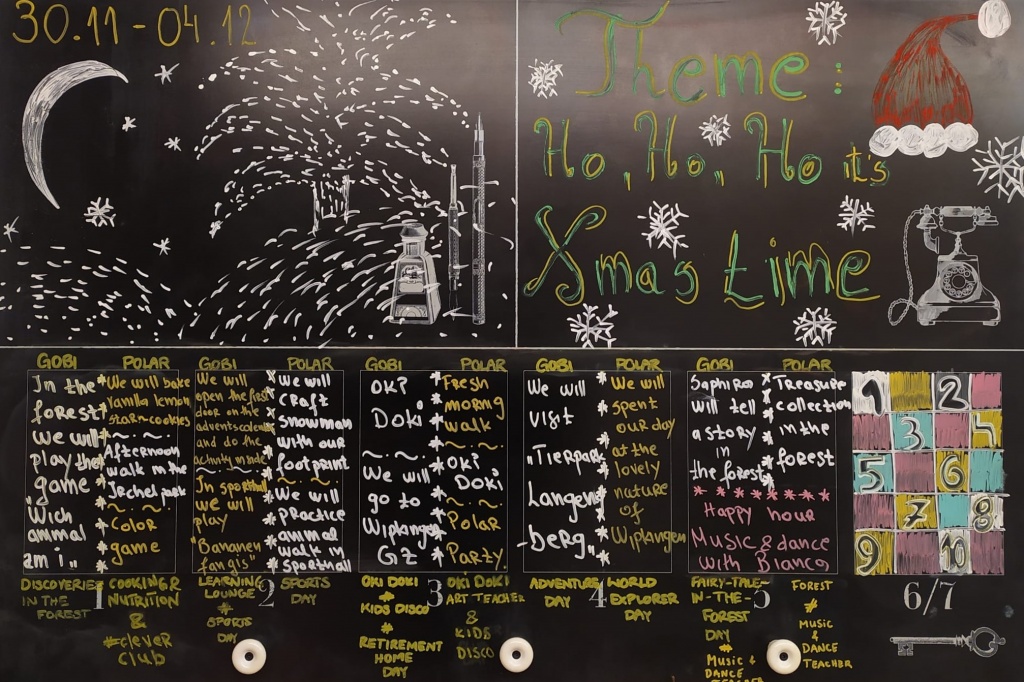 30.11 - 04.12
Theme:
Ho, Ho, Ho it's
Xmas time
GOBI
In the
forest
we will
play the
"game
Wich
animal
am i"
POLAR
We will bake
Vanilla lemon
star-cookies
Afternoon
walk in the
color
game
GOBI
We will
open the first
door on the
and do the
In sporthall
we will
play
"Bananen
fangis"
POLAR
We will
craft
snowman
with our
footprint
We will
practice
animal
walk in
sporthall
GOBI
OKi
Doki
We will
go to
GZ
POLAR
Fresh
walk
OKi
Doki
Polar
Party
GOBI
We will
visit
"Tierpark
Langen
-berg"
POLAR
We will
spent
our day
at the
lovely
nature
of
Wipkingen
GOBI
will tell
a story
in
the forest
POLAR
Treasure
collection
in the
forest
Happy hour
Music & dance
with Bianca
DISCOVERIES
IN THE
FOREST
1
COOKING &
NUTRITION
&
#CLEVER
CLUB
LEARNING
LOUNGE
#
SPORTS
DAY
2
SPORTS
DAY
OKI DOKI
#
KIDS DISCO
#
RETIREMENT
HOME
DAY
3
OKI DOKI
ART TEACHER
&
KIDS
DISCO
ADVENTURE
DAY
4
WORLD
EXPLORER
DAY
FAIRY-TALE-
IN-THE-
FOREST
DAY
#
MUSIC &
DANCE
5
FOREST
#
MUSIC
&
DANCE
TEACHER
1 2
3 4
5 6
7 8
9 10
6/7